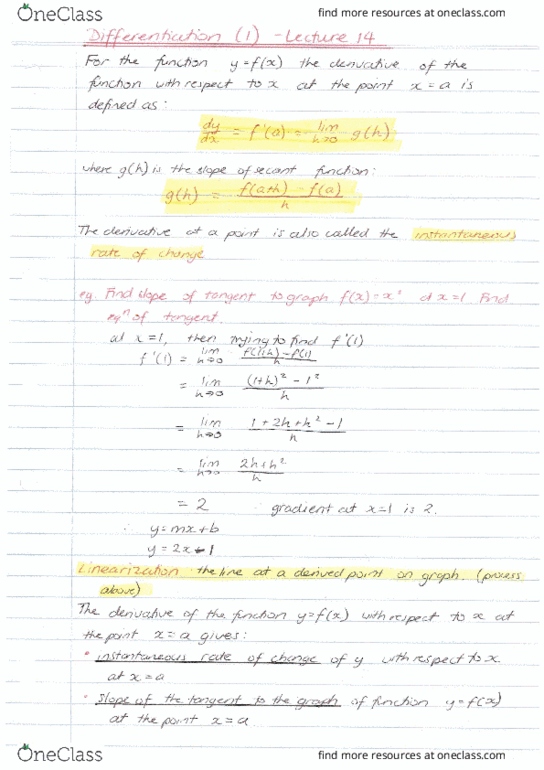 OneClass
find more resources at oneclass.com
Differentiation (1) - Lecture 14
For the function y=f(x) the derivative of the
function with respect to x at the point x = a is
defined as:
dy/dx = f'(a) = lim h→0 g(h)
where g(h) is the slope of secant function:
g(h) = f(a+h) - f(a) / h
The derivative at a point is also called the instantaneous
rate of change
eg. Find slope of tangent to graph f(x)=x² at x=1. Find
eqⁿ of tangent.
at x=1, then trying to find f'(1)
f'(1) = lim h→0 f(1+h)-f(1) / h
= lim h→0 (1+h)² - 1² / h
= lim h→0 1+2h+h²-1 / h
= lim h→0 2h+h² / h
= 2 ∴ gradient at x=1 is 2.
∴ y=mx+b
y=2x-1
Linearization the line at a derived point on graph. (process
above)
The derivative of the function y=f(x) with respect to x at
the point x=a gives:
• instantaneous rate of change of y with respect to x
at x=a
• slope of the tangent to the graph of function y=f(x)
at the point x=a
OneClass
find more resources at oneclass.com